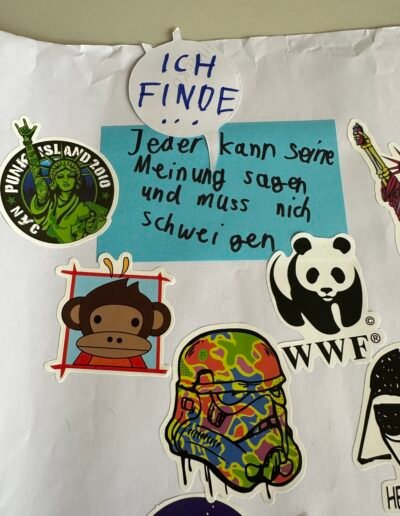 ICH
FINDE
...
Jeder kann seine
Meinung sagen
und muss nich
schweigen
PUNK ISLAND 2010
NYC
WWF®
©
HE